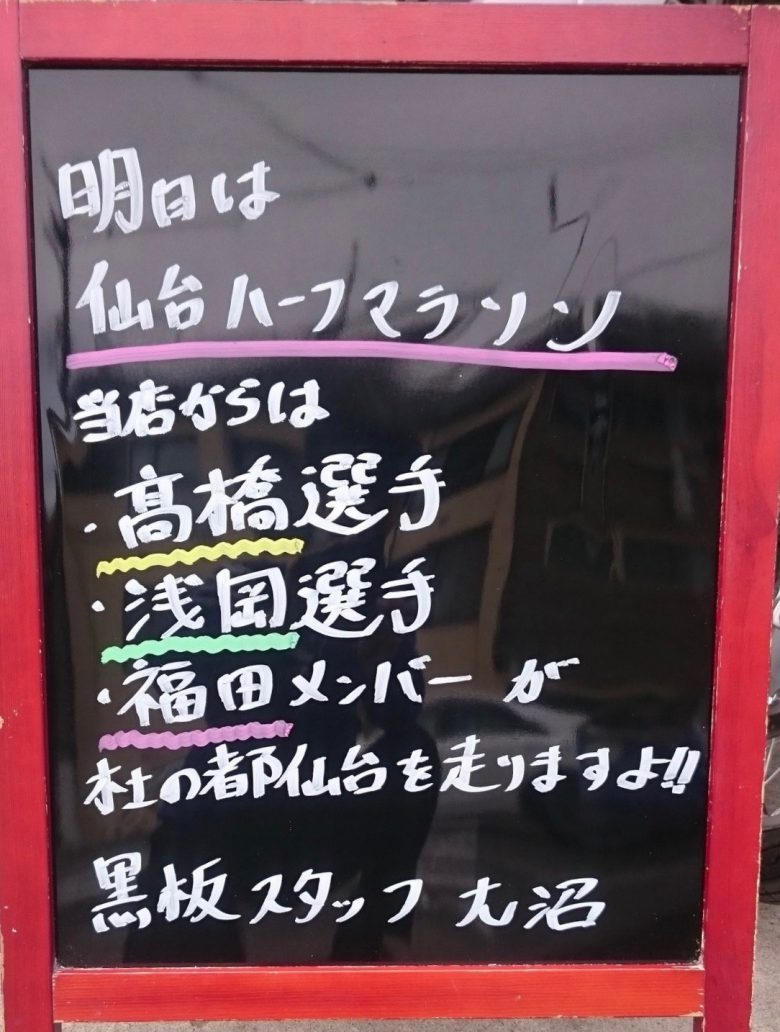 明日は
仙台ハーフマラソン
当店からは
・髙橋選手
・浅岡選手
・福田メンバーが
杜の都仙台を走りますよ!!
黒板スタッフ 大沼